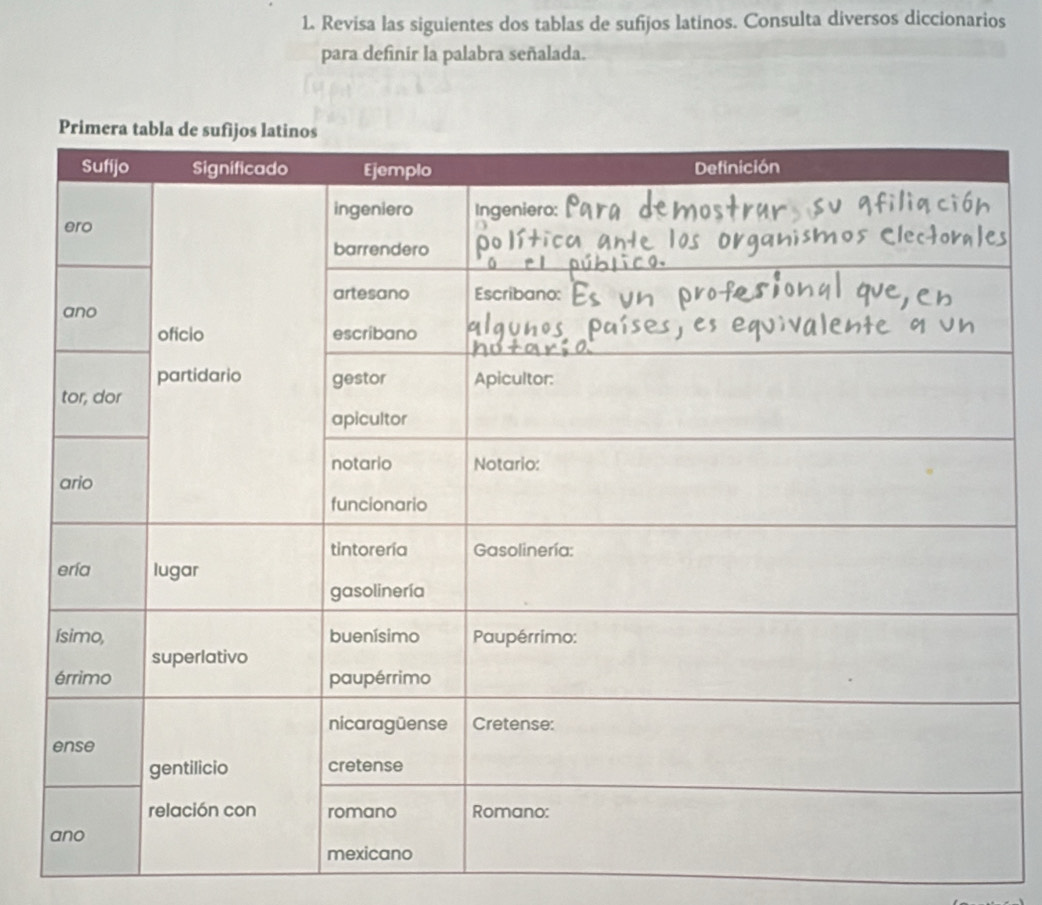 1. Revisa las siguientes dos tablas de sufijos latinos. Consulta diversos diccionarios
para definir la palabra señalada.
Primera tabla de sufijos latinos
Sufijo Significado Ejemplo Definición
ero
ingeniero
barrendero
Ingeniero: Para demostrar su afiliación
política ante los organismos electorales
o el público.
ano
oficio
partidario
artesano
escribano
Escribano: Es un profesional que, en
algunos países, es equivalente a un
notario.
tor, dor
gestor
apicultor
Apicultor:
ario
notario
funcionario
Notario:
ería
lugar
tintorería
gasolinería
Gasolinería:
ísimo,
érrimo
superlativo
buenísimo
paupérrimo
Paupérrimo:
ense
gentilicio
relación con
nicaragüense
cretense
Cretense:
ano
romano
mexicano
Romano: